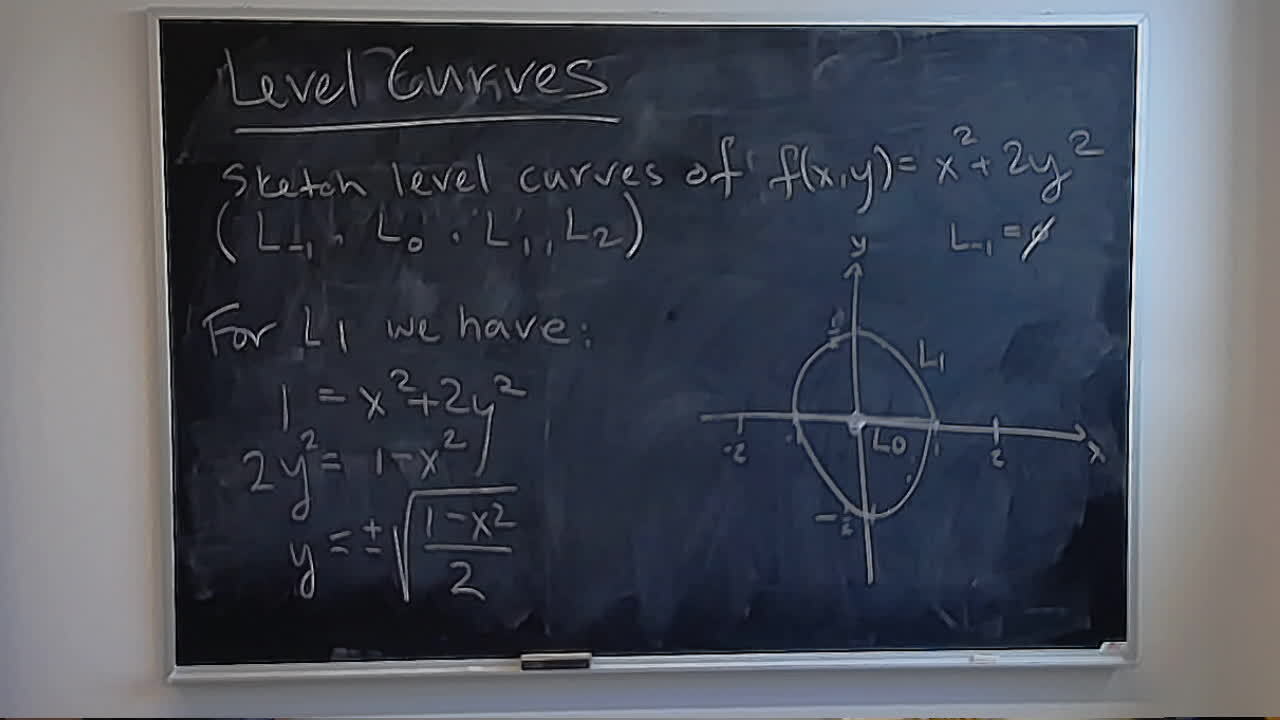 Level Curves
Sketch level curves of f(x,y) = x² + 2y²
(L₋₁, L₀, L₁, L₂)
L₋₁ = ∅
For L₁ we have:
1 = x² + 2y²
2y² = 1 - x²
y = ± √((1 - x²)/2)
y
L₁
-2
-1
L0
1
2
x